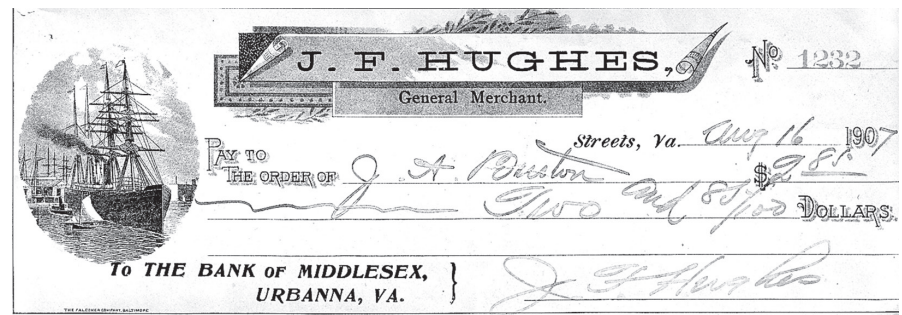 J. F. HUGHES,
No. 1232
General Merchant.
Streets, Va. Aug 16 1907
PAY TO
THE ORDER OF J A $ 2.85
Two and 85/100 DOLLARS.
TO THE BANK OF MIDDLESEX,
URBANNA, VA.
J F Hughes
THE FALCONER COMPANY, BALTIMORE